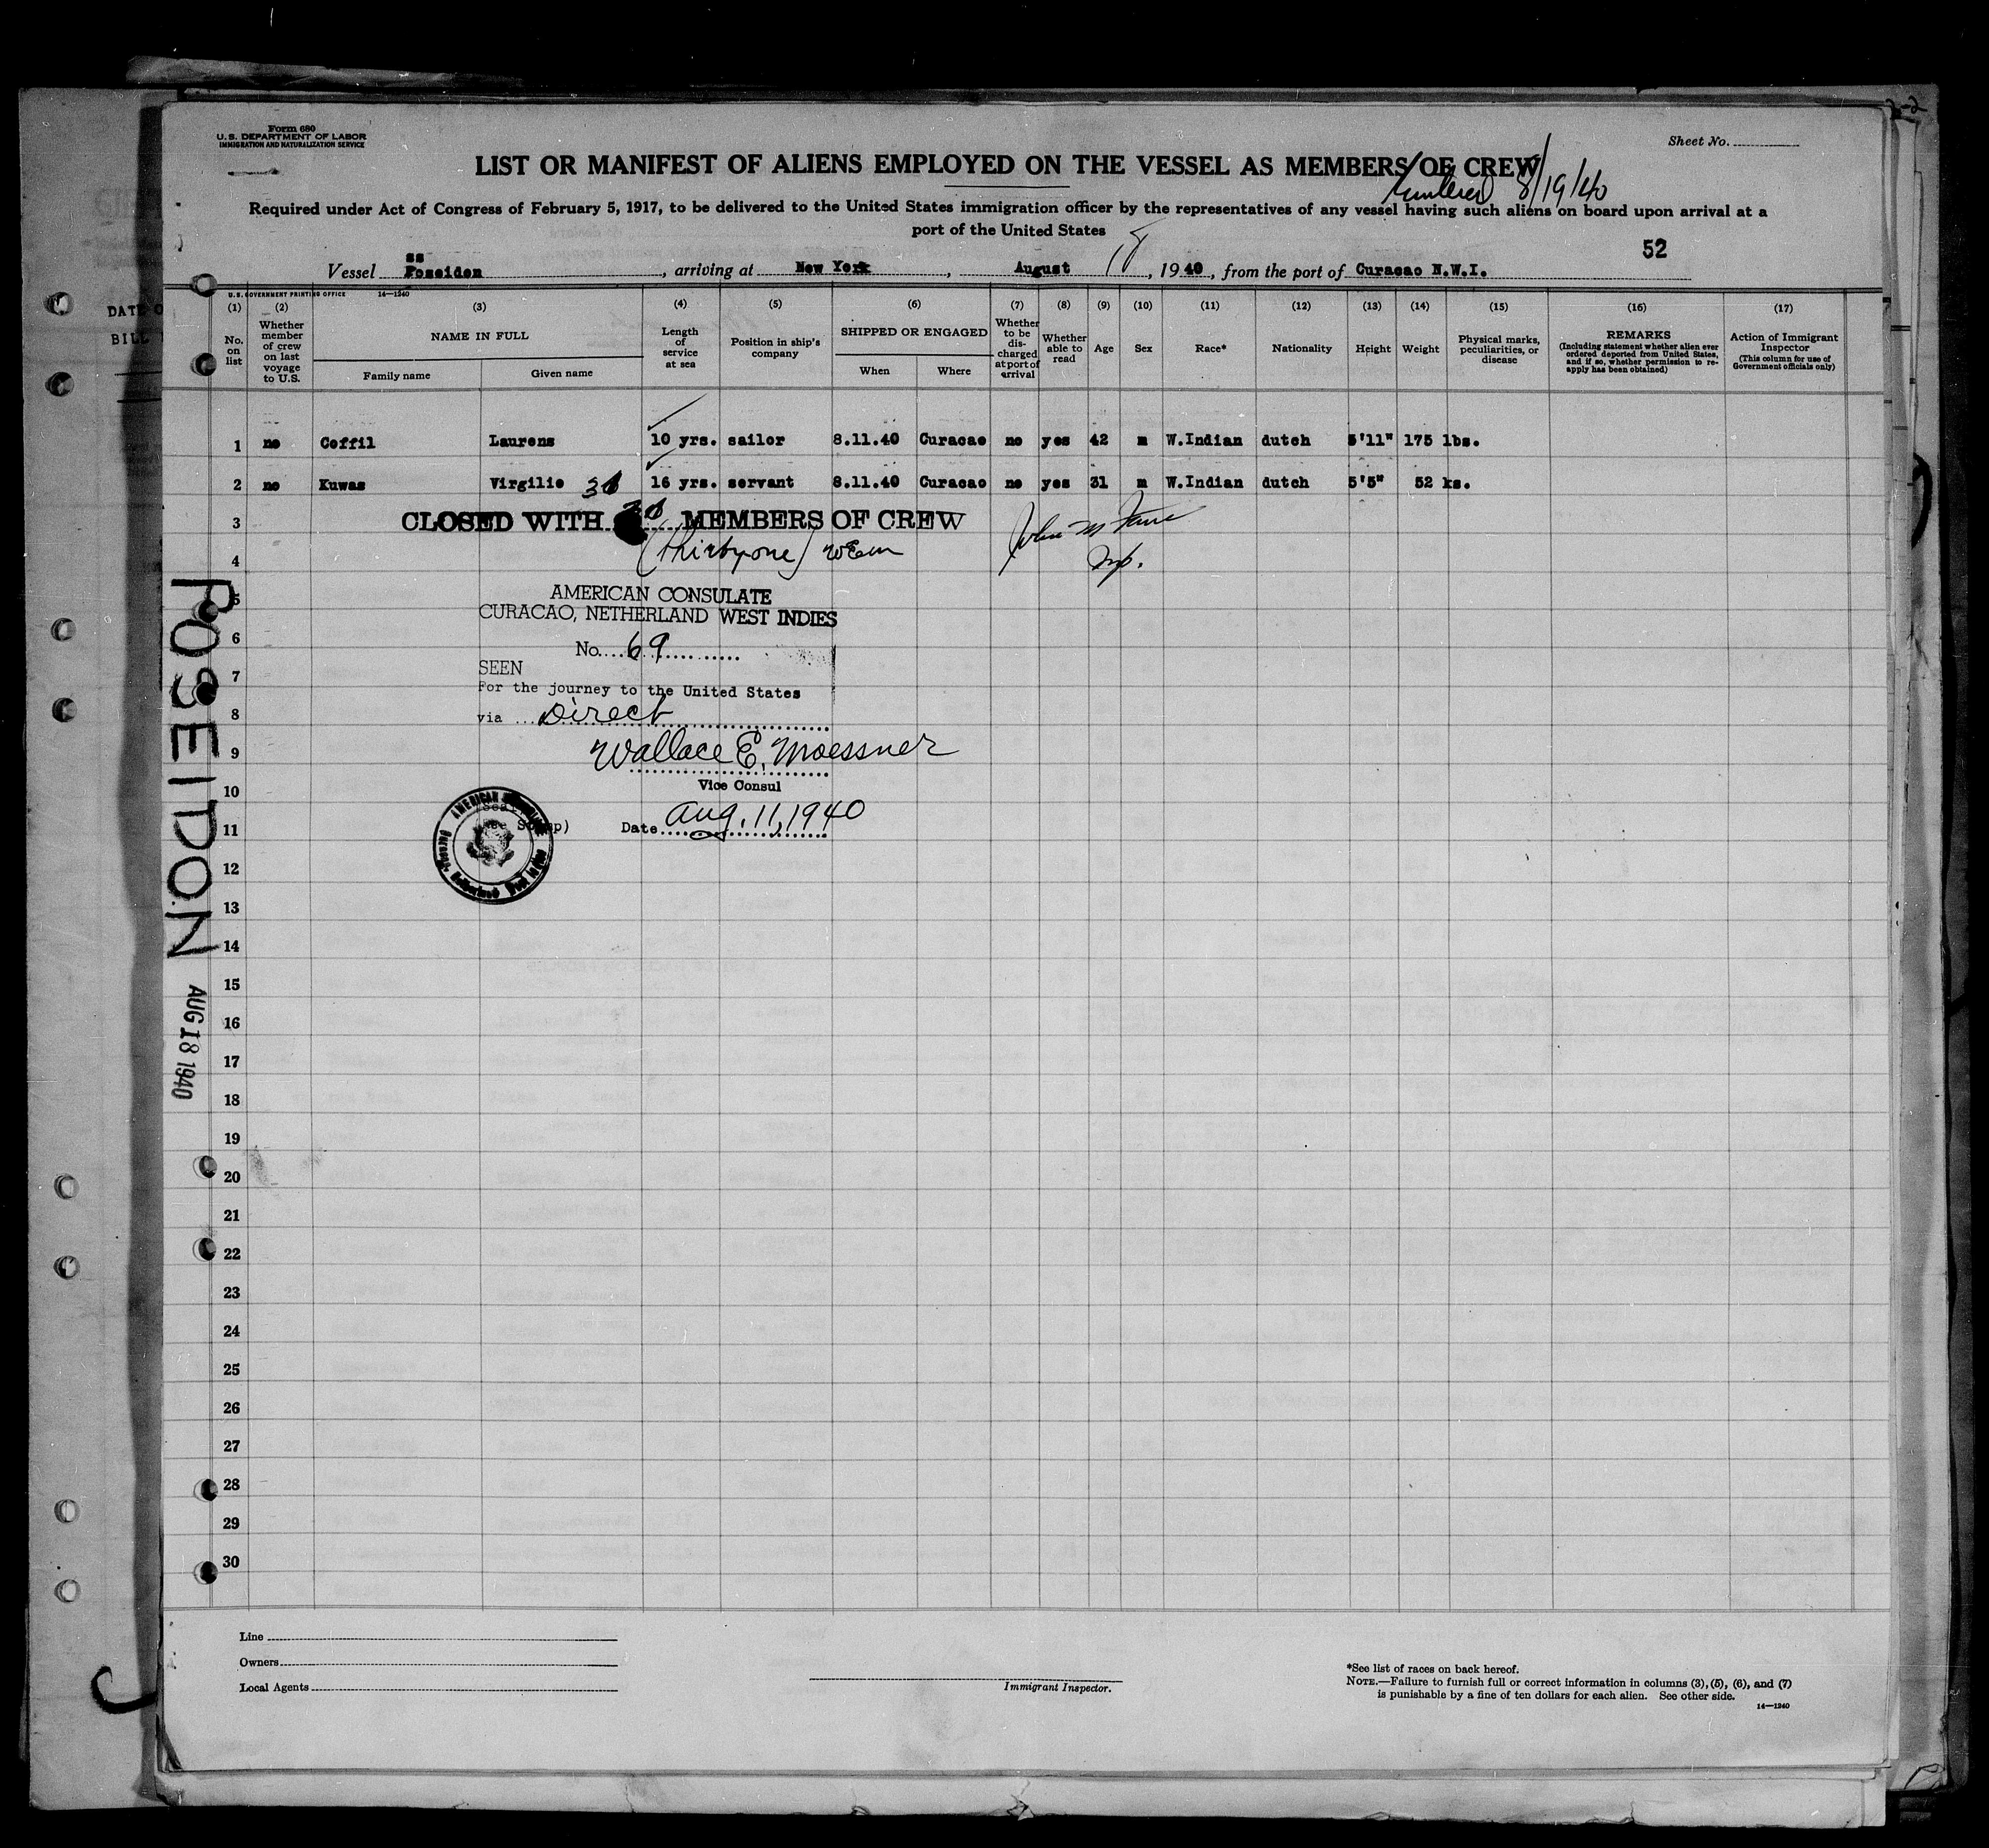 Form 680
U. S. DEPARTMENT OF LABOR
IMMIGRATION AND NATURALIZATION SERVICE
Sheet No.
LIST OR MANIFEST OF ALIENS EMPLOYED ON THE VESSEL AS MEMBERS OF CREW
8/19/40
Required under Act of Congress of February 5, 1917, to be delivered to the United States immigration officer by the representatives of any vessel having such aliens on board upon arrival at a
port of the United States
52
Vessel ss Poseidon, arriving at New York, August 18, 1940, from the port of Curacao N.W.I.
U. S. GOVERNMENT PRINTING OFFICE 14—1240
(1) (2) (3) (4) (5) (6) (7) (8) (9) (10) (11) (12) (13) (14) (15) (16) (17)
No. on list
Whether member of crew on last voyage to U.S.
NAME IN FULL
Family name
Given name
Length of service at sea
Position in ship's company
SHIPPED OR ENGAGED
When
Where
Whether to be discharged at port of arrival
Whether able to read
Age
Sex
Race*
Nationality
Height
Weight
Physical marks, peculiarities, or disease
REMARKS
(Including statement whether alien ever ordered deported from United States, and if so, whether permission to reapply has been obtained)
Action of Immigrant Inspector
(This column for use of Government officials only)
1 no Coffil Laurens 10 yrs. sailor 8.11.40 Curacao no yes 42 m W.Indian dutch 5'11" 175 lbs.
2 no Kuwas Virgilio 16 yrs. servant 8.11.40 Curacao no yes 31 m W.Indian dutch 5'5" 52 ks.
31
3 CLOSED WITH 31 MEMBERS OF CREW
4 (thirtyone) WEM
5 AMERICAN CONSULATE
CURACAO, NETHERLAND WEST INDIES
6 No. 69
SEEN
7 For the journey to the United States
8 via Direct
9 Wallace E. Moessner
10 Vice Consul
11 Date Aug. 11, 1940
12
13
14
15
16
17
18
19
20
21
22
23
24
25
26
27
28
29
30
POSEIDON
AUG 18 1940
Line
Owners
Local Agents
Immigrant Inspector.
*See list of races on back hereof.
NOTE.—Failure to furnish full or correct information in columns (3), (5), (6), and (7)
is punishable by a fine of ten dollars for each alien. See other side.
14—1240